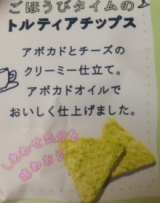 ごほうびタイムの
トルティアチップス
アボカドとチーズの
クリーミー仕立て。
アボカドオイルで
おいしく仕上げました。